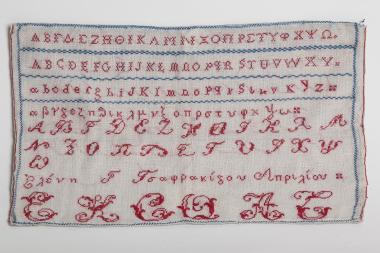 ΑΒΓΔΕΖΗΘΙΚΛΜΝΞΟΠΡΣΤΥΦΧΨΩ.
ABCDEFGHIJKLMNOPQRSTUVWXYZ
abcdefghijklmnopqrstuvxyz
αβγδεζηθικλμνξοπρστυφχψω
Α Β Γ Δ Ε Ζ Η Θ Ι Κ Λ Μ
Ν Ξ Ο Π Ρ Σ Τ Υ Φ Χ Ψ
Ω
Ελένη Γ Τσαφρακίζου Απριλίου